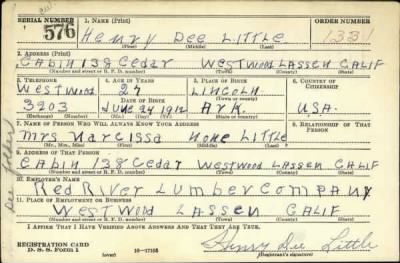 SERIAL NUMBER 1. NAME (Print) ORDER NUMBER
576 Henry Dee Little 1331
(First) (Middle) (Last)
2. ADDRESS (Print)
Cabin 138 Cedar Westwood Lassen Calif
(Number and street or R. F. D. number) (Town) (County) (State)
3. TELEPHONE 4. AGE IN YEARS 5. PLACE OF BIRTH 6. COUNTRY OF CITIZENSHIP
Westwood 27 Lincoln
DATE OF BIRTH (Town or county)
3203 June 24 1912 Ark. U.S.A.
(Exchange) (Number) (Mo.) (Day) (Yr.) (State or country)
7. NAME OF PERSON WHO WILL ALWAYS KNOW YOUR ADDRESS 8. RELATIONSHIP OF THAT PERSON
Mrs Narcissa None Little
(Mr., Mrs., Miss) (First) (Middle) (Last)
9. ADDRESS OF THAT PERSON
Cabin 138 Cedar Westwood Lassen Calif
(Number and street or R. F. D. number) (Town) (County) (State)
10. EMPLOYER'S NAME
Red River Lumber Company
11. PLACE OF EMPLOYMENT OR BUSINESS
Westwood Lassen Calif
(Number and street or R. F. D. number) (Town) (County) (State)
I AFFIRM THAT I HAVE VERIFIED ABOVE ANSWERS AND THAT THEY ARE TRUE.
REGISTRATION CARD
D. S. S. FORM 1 (over) 16-17105 Henry Dee Little
(Registrant's signature)